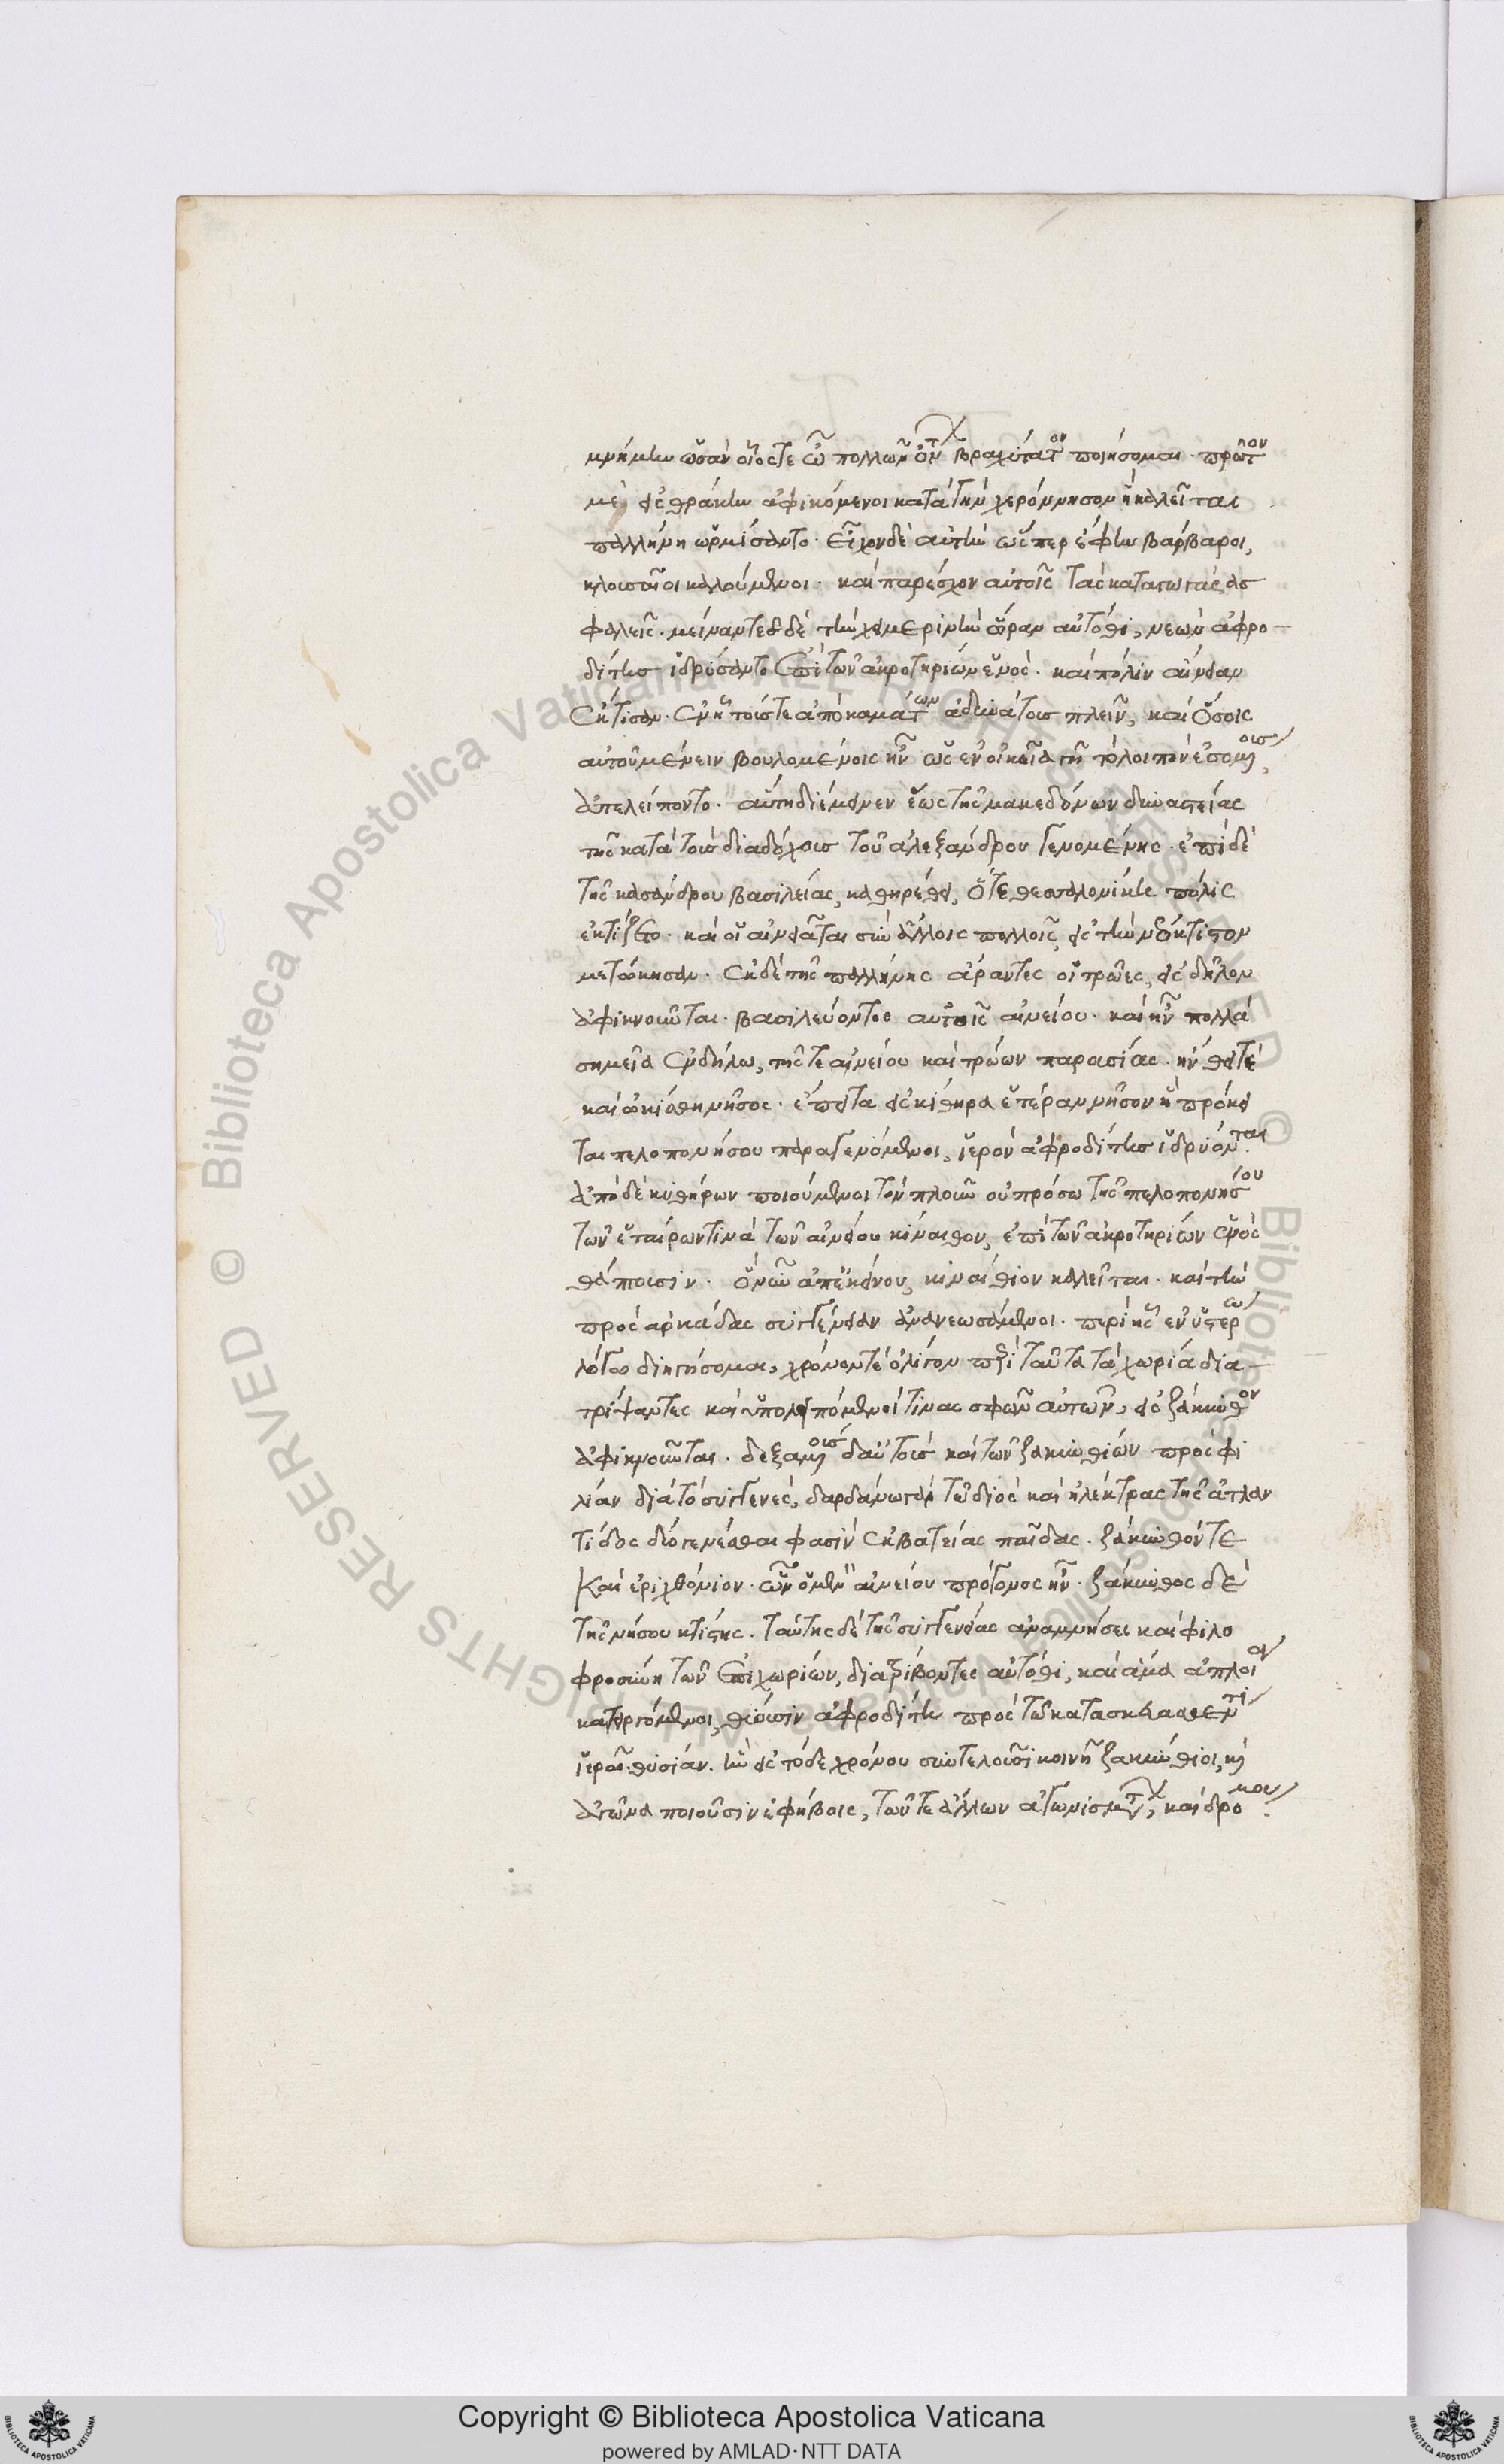 μνήμην ὡς ἂν οἷός τε ὦ πολλῶν ὄντων βραχύτατον ποιήσομαι. πρῶτον
μὲν εἰς θράκην ἀφικόμενοι κατὰ τὴν χερόννησον ἣ καλεῖται
παλλήνη ὡρμίσαντο. εἶχον δὲ αὐτὴν ὥσπερ ἔφην βάρβαροι,
κλουσταῖοι καλούμενοι. καὶ παρέσχον αὐτοῖς τὰς καταγωγὰς ἀσ
φαλεῖς. μείναντες δὲ τὴν χειμερινὴν ὥραν αὐτόθι, νεὼν ἀφρο-
δίτης ἱδρύσαντο ἐπὶ τῶν ἀκροτηρίων ἑνός. καὶ πόλιν αἴνειαν
ἔκτισαν. ἐν ᾗ τούς τε ἀπὸ καμάτων ἀδυνάτους πλεῖν, καὶ ὅσοις
αὐτοῦ μένειν βουλομένοις ἦν ὡς ἐν οἰκείᾳ γῇ τὸ λοιπὸν ἐσομένοις,
ἀπελείποντο. αὕτη διέμεινεν ἕως τῆς μακεδόνων δυναστείας
τῆς κατὰ τοὺς διαδόχους τοῦ ἀλεξάνδρου γενομένης. ἐπὶ δὲ
τῆς κασάνδρου βασιλείας, καθηρέθη, ὅτε θεσσαλονίκη πόλις
ἐκτίζετο. καὶ οἱ αἰνεᾶται σὺν ἄλλοις πολλοῖς εἰς τὴν νεόκτιστον
μετῴκησαν. ἐκ δὲ τῆς παλλήνης ἄραντες οἱ τρῶες, εἰς δῆλον
ἀφικνοῦνται. βασιλεύοντος αὐτοῖς αἰνείου. καὶ ἦν πολλὰ
σημεῖα ἐν δήλῳ, τῆς τε αἰνείου καὶ τρώων παρουσίας. ἤνθει τε
καὶ ᾠκίσθη νῆσος. ἔπειτα εἰς κίθηρα ἑτέραν νῆσον ἣ πρόκει
ται πελοπονήσου παραγενόμενοι, ἱερὸν ἀφροδίτης ἱδρύονται.
ἀπὸ δὲ κυθήρων ποιούμενοι τὸν πλοῦν οὐ πρόσω τῆς πελοπονήσου
τῶν ἑταίρων τινὰ τῶν αἰνείου κίναιθον, ἐπὶ τῶν ἀκροτηρίων ἑνὸς
θάπτουσιν. ὃ νῦν ἀπ' ἐκείνου, κιναίθιον καλεῖται. καὶ τὴν
πρὸς ἀρκάδας συγγένειαν ἀνανεωσάμενοι. περὶ ἧς ἐν ὑστέρῳ
λόγῳ διηγήσομαι, χρόνον τε ὀλίγον περὶ ταῦτα τὰ χωρία δια-
τρίψαντες καὶ ὑπολιπόμενοί τινας σφῶν αὐτῶν, εἰς ζάκυνθον
ἀφικνοῦνται. δεξαμένοις δ' αὐτοὺς καὶ τῶν ζακυνθίων πρὸς φι
λίαν διὰ τὸ συγγενές, δαρδάνῳ γὰρ τῷ διὸς καὶ ἠλέκτρας τῆς ἀτλαν
τίδος δύο γενέσθαι φασὶν ἐκ βατείας παῖδας. ζάκυνθόν τε
καὶ ἐριχθόνιον. ὧν ὁ μὲν αἰνείου πρόγονος ἦν. ζάκυνθος δὲ
τῆς νήσου κτίστης. ταύτης δὲ τῆς συγγενείας ἀναμνήσει καὶ φιλο
φροσύνῃ τῶν ἐπιχωρίων, διατρίβοντες αὐτόθι, καὶ ἅμα ἀπλοίᾳ
κατειργόμενοι, θύουσιν ἀφροδίτῃ πρὸς τῷ κατασκευασθέντι
ἱερῷ θυσίαν. ἣν εἰς τόδε χρόνου συντελοῦσι κοινῇ ζακύνθιοι, καὶ
ἀγῶνα ποιοῦσιν ἐφήβοις, τῶν τε ἄλλων ἀγωνισμάτων, καὶ δρόμου.
Copyright © Biblioteca Apostolica Vaticana
powered by AMLAD·NTT DATA